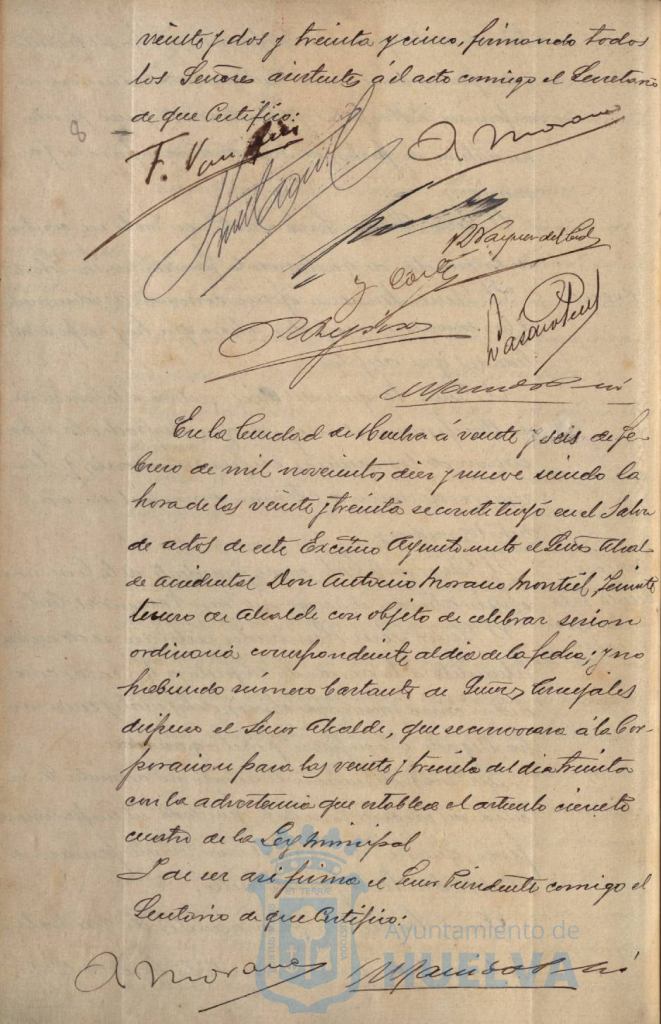 veinte y dos y treinta y cinco, firmando todos
los Señores asistentes á el acto comigo el Secretario
de que Certifico:
8
F. Van
A Morano
R Vazquez del
y Cortés
En la Ciudad de Huelva á veinte y seis de fe-
brero de mil novecientos diez y nueve siendo la
hora de las veinte y treinta se constituyó en el Salon
de actos de este Excmo Ayuntamiento el Señor Alcal
de accidental Don Antonio Morano Montiel, Teniente
tercero de Alcalde con objeto de celebrar sesion
ordinaria correspondiente al dia de la fecha; y no
habiendo número bastante de Señores Concejales
dispuso el Señor Alcalde, que se convocara á la Cor-
poracion para las veinte y treinta del dia treinta
con la advertencia que establece el articulo ciento
cuatro de la Ley Municipal
Y de ser asi firma el Señor Presidente comigo el
Secretario de que Certifico:
A Morano
Ayuntamiento de
HUELVA